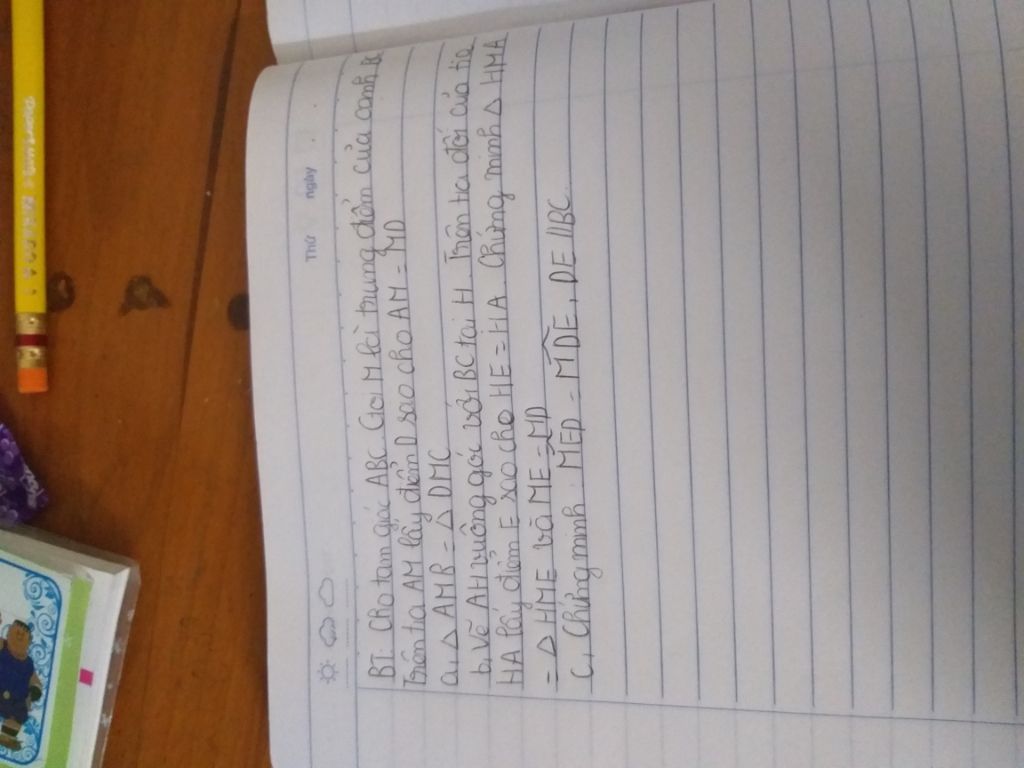 Thứ ngày
BT: Cho tam giác ABC. Gọi M là trung điểm của cạnh BC
Trên tia AM lấy điểm D sao cho AM = MD
a, △ AMB = △ DMC
b, Vẽ AH vuông góc với BC tại H. Trên tia đối của tia
HA lấy điểm E sao cho HE = HA. Chứng minh △ HMA
= △ HME và ME = MD
c, Chứng minh: MED = MDE, DE // BC